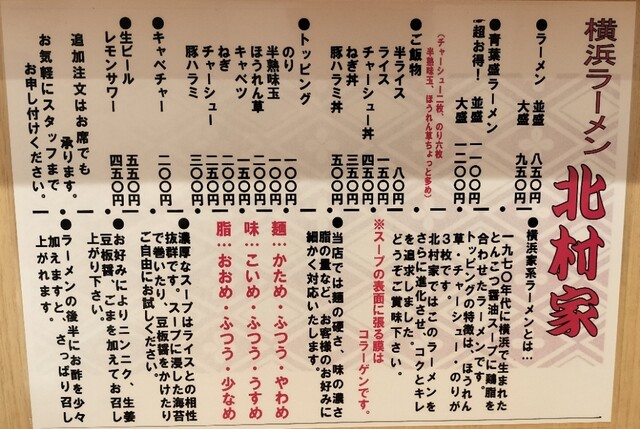 横浜ラーメン 北村家
●ラーメン 並盛 八五〇円
大盛 九五〇円
●青葉盛ラーメン
超お得! 並盛 一一〇〇円
大盛 一二〇〇円
(チャーシュー二枚、のり六枚
半熟味玉、ほうれん草ちょっと多め)
●ご飯物
半ライス 八〇円
ライス 一五〇円
チャーシュー丼 四五〇円
ねぎ丼 三五〇円
豚ハラミ丼 五〇〇円
●トッピング
のり 一〇〇円
半熟味玉 一〇〇円
ほうれん草 二〇〇円
キャベツ 一五〇円
ねぎ 二〇〇円
チャーシュー 二〇〇円
豚ハラミ 三〇〇円
●キャベチャー 二〇〇円
●生ビール 五五〇円
レモンサワー 四五〇円
追加注文はお席でも
承ります。
お気軽にスタッフまで
お申し付けください。
●横浜家系ラーメンとは…
一九七〇年代に横浜で生まれた
とんこつ醤油スープに鶏脂を
合わせたラーメンです。
トッピングの特徴は、ほうれん
草・チャーシュー・のりが
3枚です。
北村家ではこのラーメンを
さらに進化させ、コクとキレ
を追求しました。
どうぞご賞味下さい。
※スープの表面に張る膜は
コラーゲンです。
●当店では麺の硬さ、味の濃さ
脂の量など、お客様のお好みに
細かく対応いたします。
麺…かため・ふつう・やわめ
味…こいめ・ふつう・うすめ
脂…おおめ・ふつう・少なめ
●濃厚なスープはライスとの相性
抜群です。スープに浸した海苔
で巻いたり、豆板醤をかけたり
ご自由にお試しください。
●お好みによりニンニク、生姜
豆板醤、ごまを加えてお召し
上がり下さい。
●ラーメンの後半にお酢を少々
加えますと、さっぱり召し
上がれます。